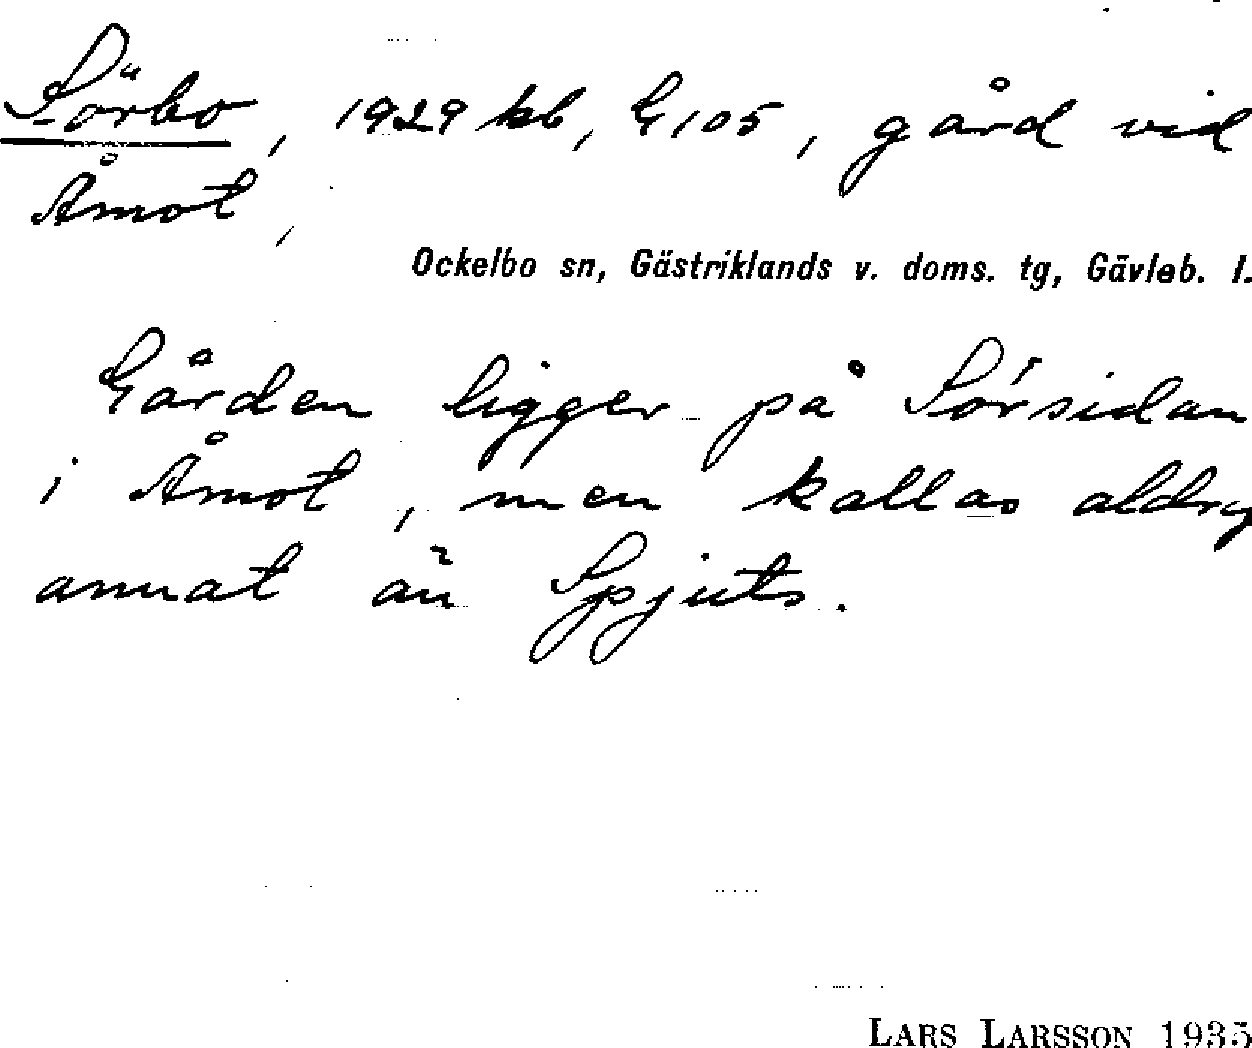 Sörbo, 1929 kb, G105, gård vid
Åmot,
Ockelbo sn, Gästriklands v. doms. tg, Gävleb. l.
Gården ligger på Sörsidan
i Åmot, men kallas aldrig
annat än Spjuts.
LARS LARSSON 1935